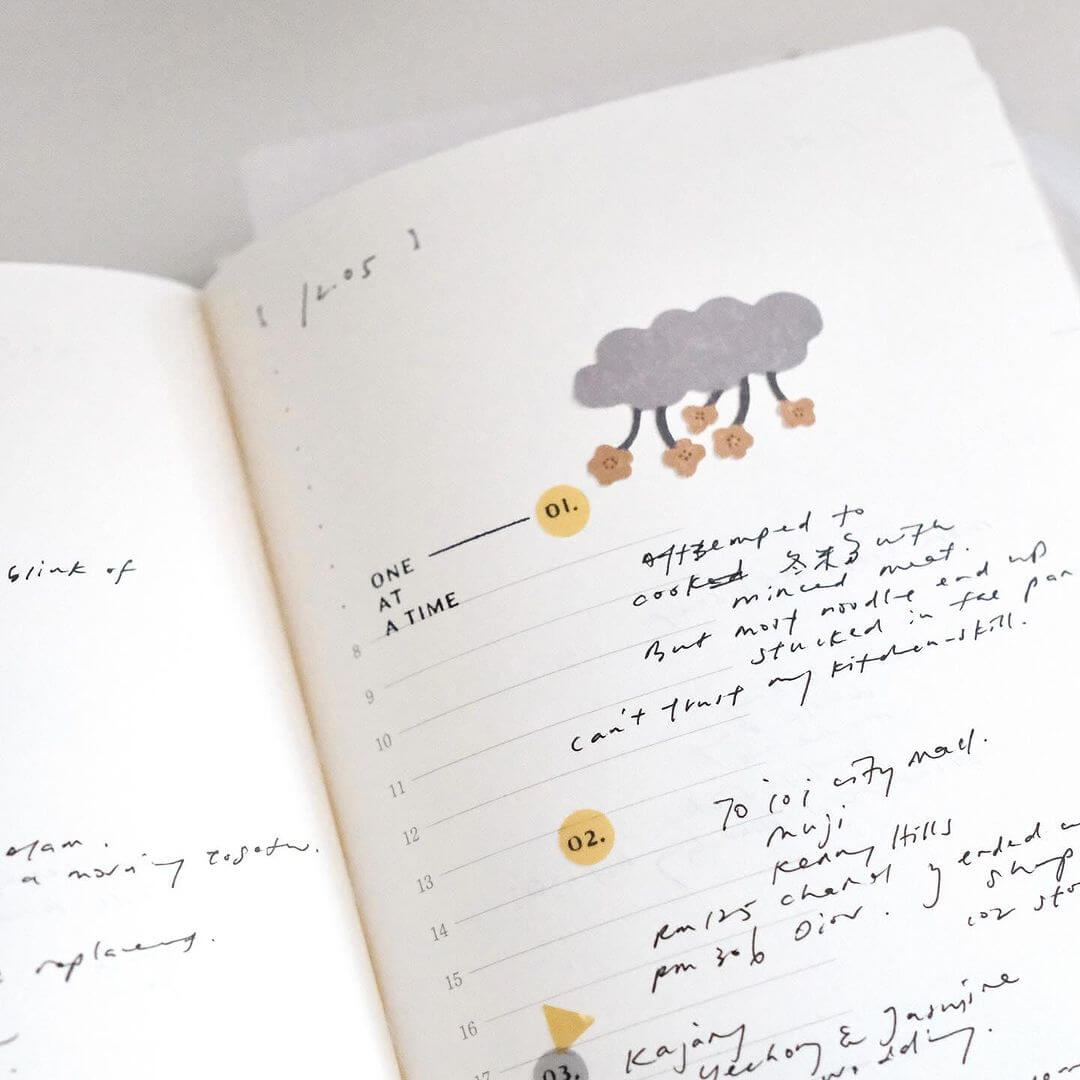 blink of
a morning together.
replacing.
[ 12.05 ]
01.
ONE
AT
A TIME
Attemped to
cooked 冬粉 with
minced meat.
But most noodle end up
stucked in the pan
can't trust my kitchen-skill.
8
9
10
11
12
13
14
15
16
17
02.
To ioi city mall.
muji
Kenny Hills
RM125 chanel } ended
RM306 Dior.
shop
coz
03.
Kajang
Yeehong & Jasmine
wedding.